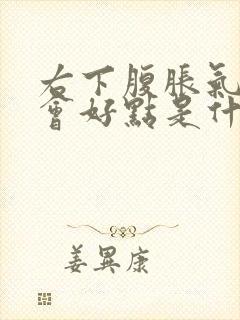 右下腹脹氣
會好點是什
姜異康